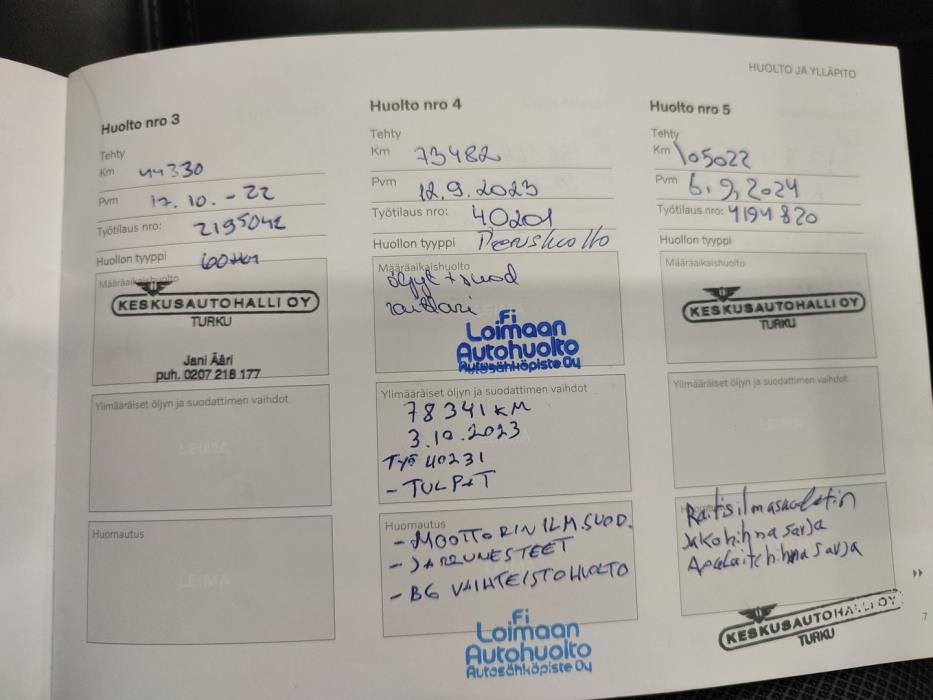 HUOLTO JA YLLÄPITO
Huolto nro 3
Tehty
Km 44330
Pvm 17.10.-22
Työtilaus nro: 2195042
Huollon tyyppi
Määräaikaishuolto
KESKUSAUTOHALLI OY
TURKU
Jani Ääri
puh. 0207 218 177
Ylimääräiset öljyn ja suodattimen vaihdot
LEIMA
Huomautus
LEIMA
Huolto nro 4
Tehty
Km 73482
Pvm 12.9.2023
Työtilaus nro: 40201
Huollon tyyppi Perushuolto
Määräaikaishuolto
öljyt + suod
.Fi
Loimaan
Autohuolto
Autosähköpiste Oy
Ylimääräiset öljyn ja suodattimen vaihdot
78341 KM
3.10.2023
TYÖ 40231
- TULPAT
Huomautus
- MOOTTORIN ILM.SUOD.
- JARRUNESTEET
- BG VAIHTEISTOHUOLTO
.Fi
Loimaan
Autohuolto
Autosähköpiste Oy
Huolto nro 5
Tehty
Km 105022
Pvm 6.9.2024
Työtilaus nro: 4194820
Huollon tyyppi
Määräaikaishuolto
KESKUSAUTOHALLI OY
TURKU
Ylimääräiset öljyn ja suodattimen vaihdot
LEIMA
Raitisilmasuodatin
Jakohihnasarja
Apulaitehihnasarja
KESKUSAUTOHALLI OY
TURKU
7